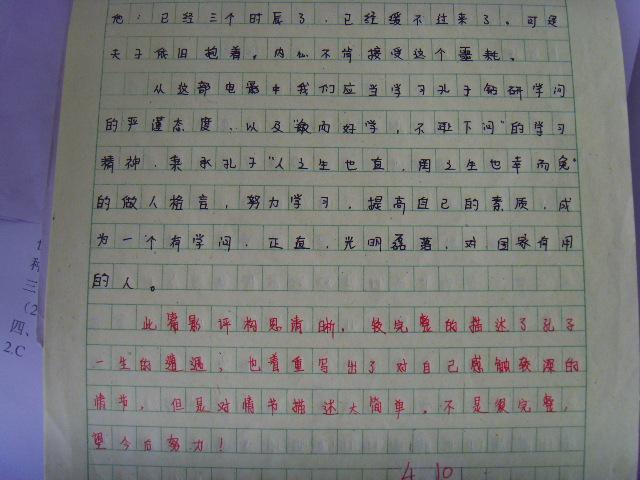 他：已经三个时辰了，已经缓不过来了。可是
夫子依旧抱着，内心不肯接受这个噩耗。
从这部电影中我们应当学习孔子钻研学问
的严谨态度，以及“敏而好学，不耻下问”的学习
精神，秉承孔子“人之生也直，罔之生也幸而免”
的做人格言，努力学习，提高自己的素质，成
为一个有学问，正直，光明磊落，对国家有用
的人。
此篇影评构思清晰，较完整的描述了孔子
一生的遭遇，也着重写出了对自己感触较深的
情节，但是对情节描述太简单，不是很完整，
望今后努力！
4 10
三
(2
四、
2.C